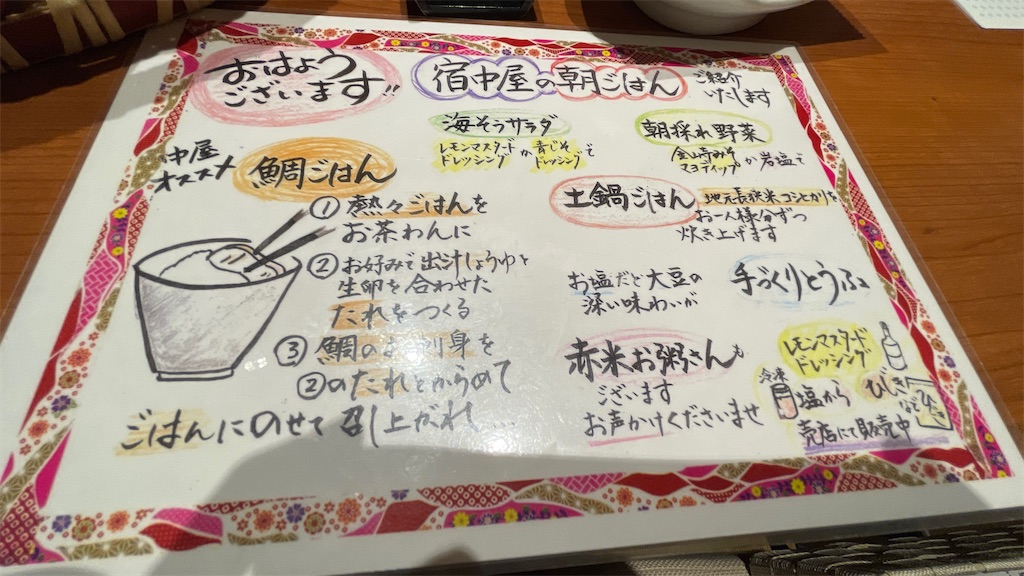 おはよう
ございます!!
宿中屋の朝ごはん
ご紹介
いたします
海そうサラダ
レモンマスタード
ドレッシング
か
青じそ
ドレッシング
で
朝採れ野菜
金山寺みそ
マヨディップ
か岩塩で
中屋
オススメ
鯛ごはん
①熱々ごはんを
お茶わんに
②お好みで出汁しょうゆと
生卵を合わせた
たれをつくる
③鯛のお刺身を
②のたれとからめて
ごはんにのせて召し上がれ…
土鍋ごはん
地元長狭米コシヒカリを
お一人様分ずつ
炊き上げます
お塩だと大豆の
深い味わいが
手づくりとうふ
赤米お粥さんも
ございます
お声かけくださいませ
レモンマスタード
ドレッシング
冷凍
塩から
ひじき
など
売店にて販売中